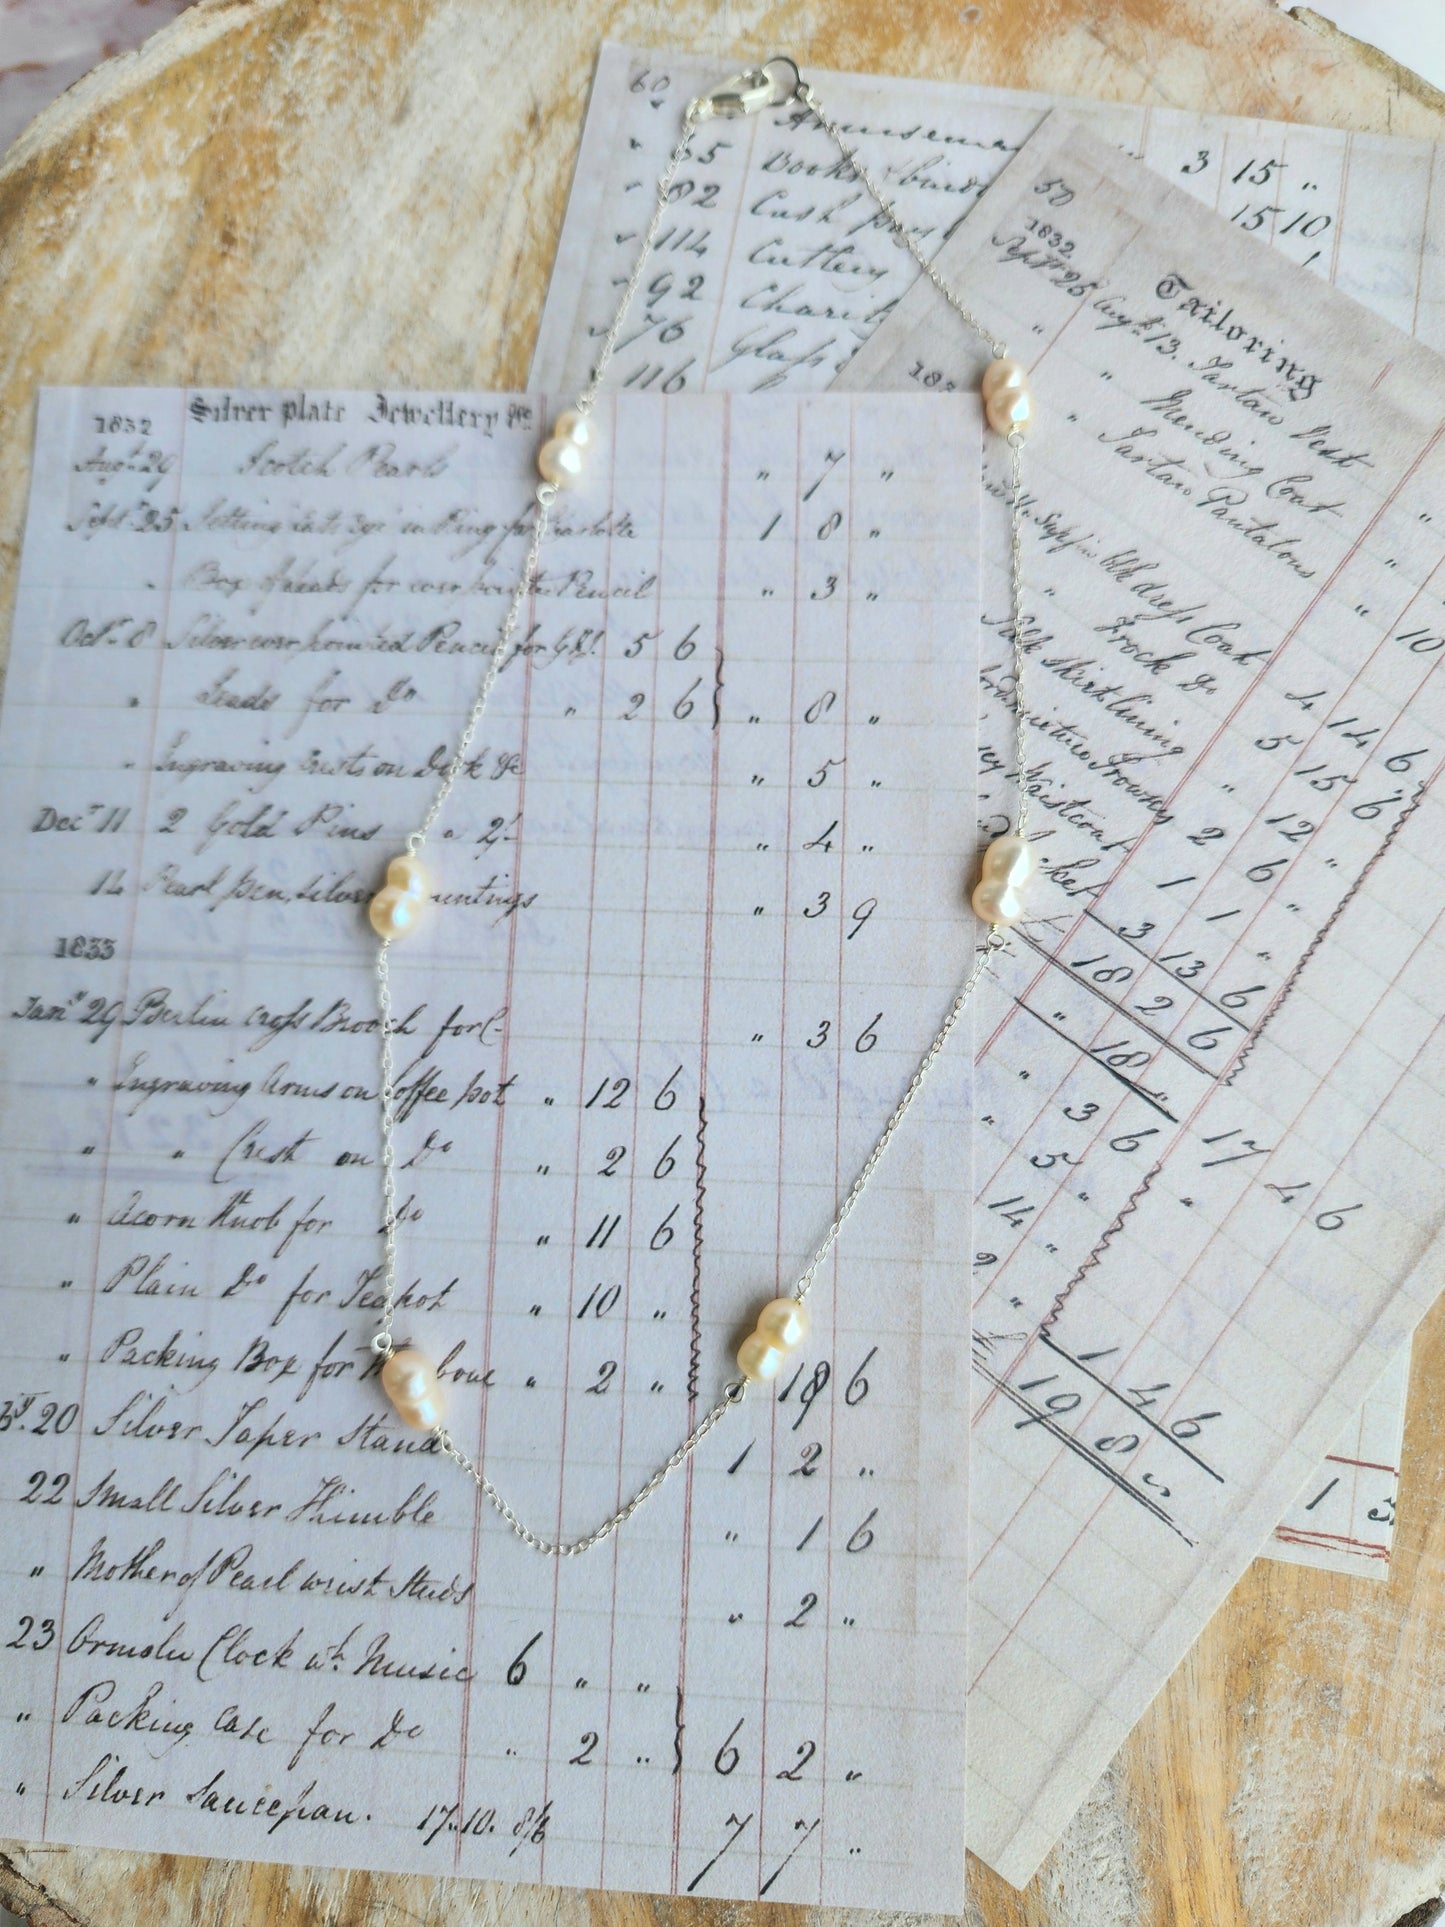 1832 Silver plate Jewellery &c
Augt 29 Scotch Pearls " 7 "
Sept 25 Setting Cats eye in Ring for Charlotte 1 8 "
" Box of Leads for ever pointed Pencil " 3 "
Octr 8 Silver ever pointed Pencil for 5 6
" Leads for Do " 2 6 " 8 "
" Engraving Crests on Dirk &c " 5 "
Decr 11 2 Gold Pins " 2/- " 4 "
14 Pearl pen, silver mountings " 3 9
1833
Jany 29 Berlin cross Brooch for C- " 3 6
" Engraving Arms on Coffee pot " 12 6
" " Crest on Do " 2 6
" Acorn Knob for Do " 11 6
" Plain Do for Teapot " 10 "
" Packing Box for the above " 2 " 18 6
20 Silver Taper Stand 1 2 "
22 Small Silver Thimble " 1 6
" Mother of Pearl wrist Studs " 2 "
23 Ormolu Clock wh. Music 6 " "
" Packing Case for Do " 2 " 6 2 "
" Silver Saucepan. 17..10. 8/6 7 7 "
60 Amuseme
" 65 Books & bindi 3 15 "
" 82 Cash pays 15 10
114 Cutlery
" 92 Charit
76 Glass &
116
50
1832 Tailoring
Sept 25 Augt 13. Tartan Vest "
" " Mending Coat "
" " Tartan Pantaloons " 10
dress Coat 4 14 6
" Frock Do 5 15 6
Silk skirt lining " 12 "
Trowsers 2 6 "
Waistcoat 1 1 "
3 13 6
18 2 6
" 18 "
" 3 6 17 4 6
" 5 " "
14 "
2 "
1 4 6
19 8 "
1